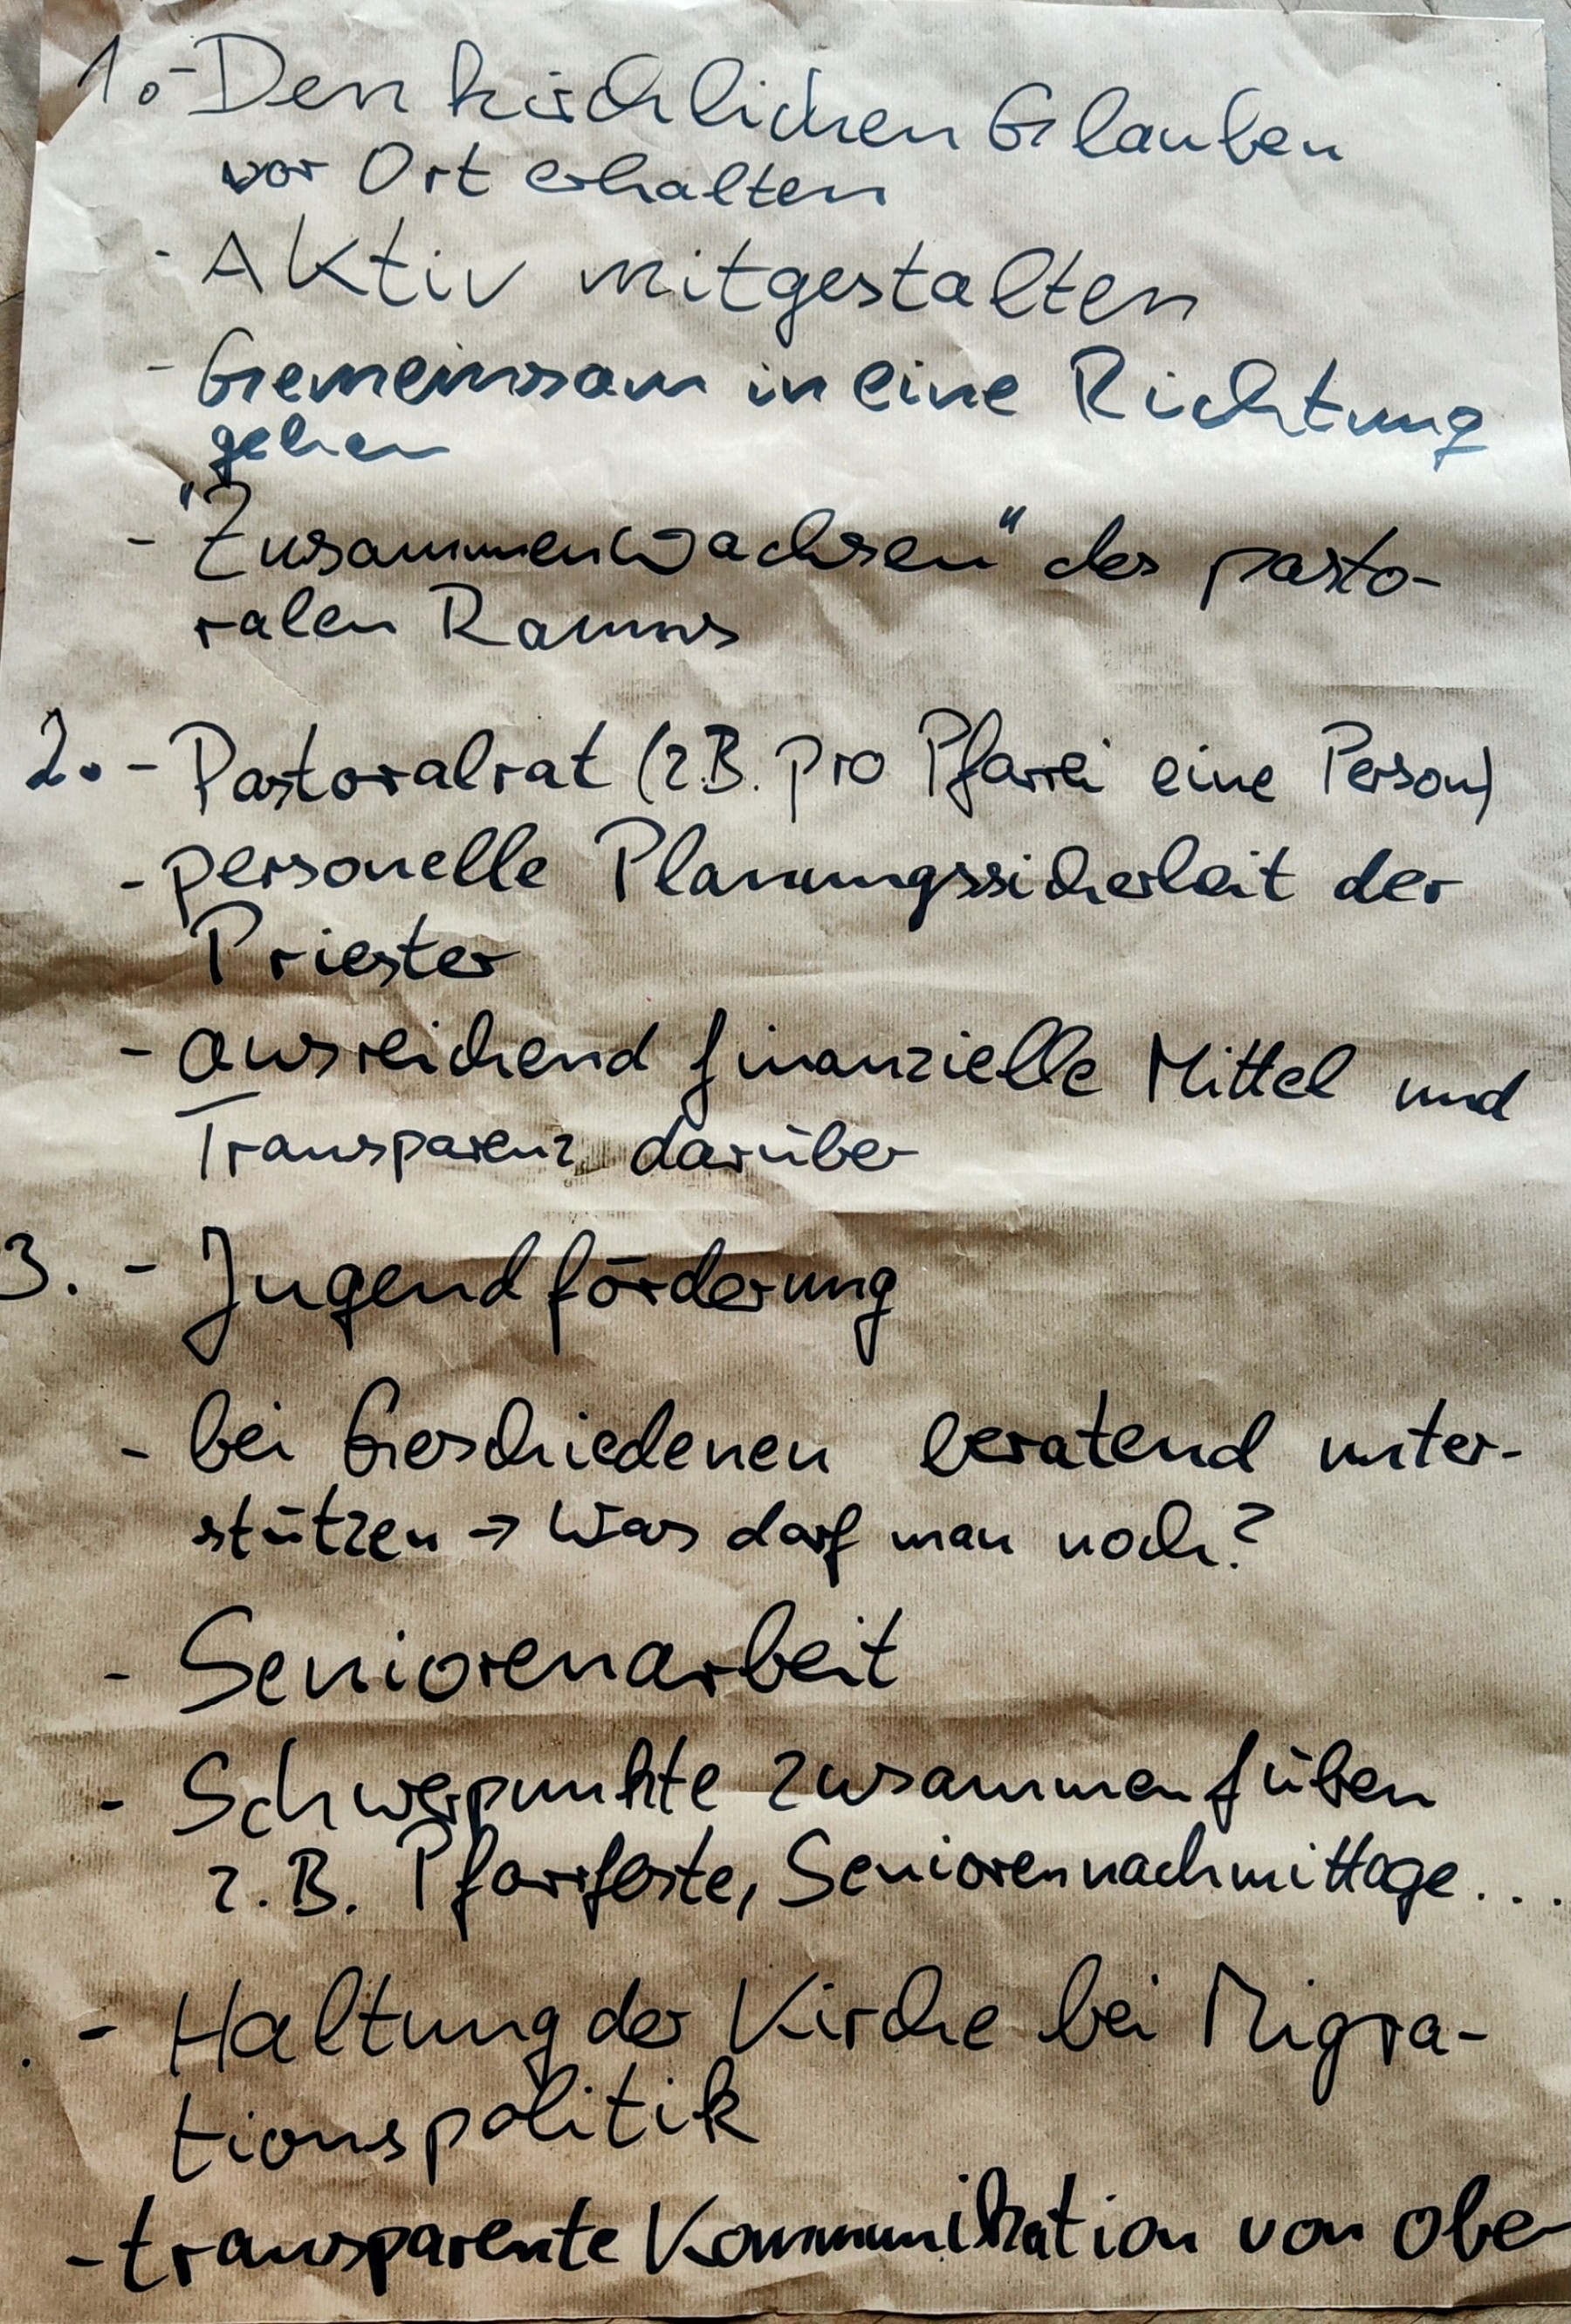 1. - Den kirchlichen Glauben
vor Ort erhalten
- Aktiv mitgestalten
- Gemeinsam in eine Richtung
gehen
- "Zusammenwachsen" des pasto-
ralen Raums
2. - Pastoralrat (z.B. pro Pfarrei eine Person)
- personelle Planungssicherheit der
Priester
- ausreichend finanzielle Mittel und
Transparenz darüber
3. - Jugendförderung
- bei Geschiedenen beratend unter-
stützen → Was darf man noch?
- Seniorenarbeit
- Schwerpunkte zusammenfüben
z.B. Pfarrfeste, Seniorennachmittage...
- Haltung der Kirche bei Migra-
tionspolitik
- transparente Kommunikation von obe